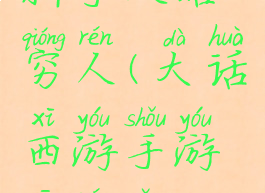 qióng rén dà huà
穷人(大话
xī yóu shǒu yóu
西游手游